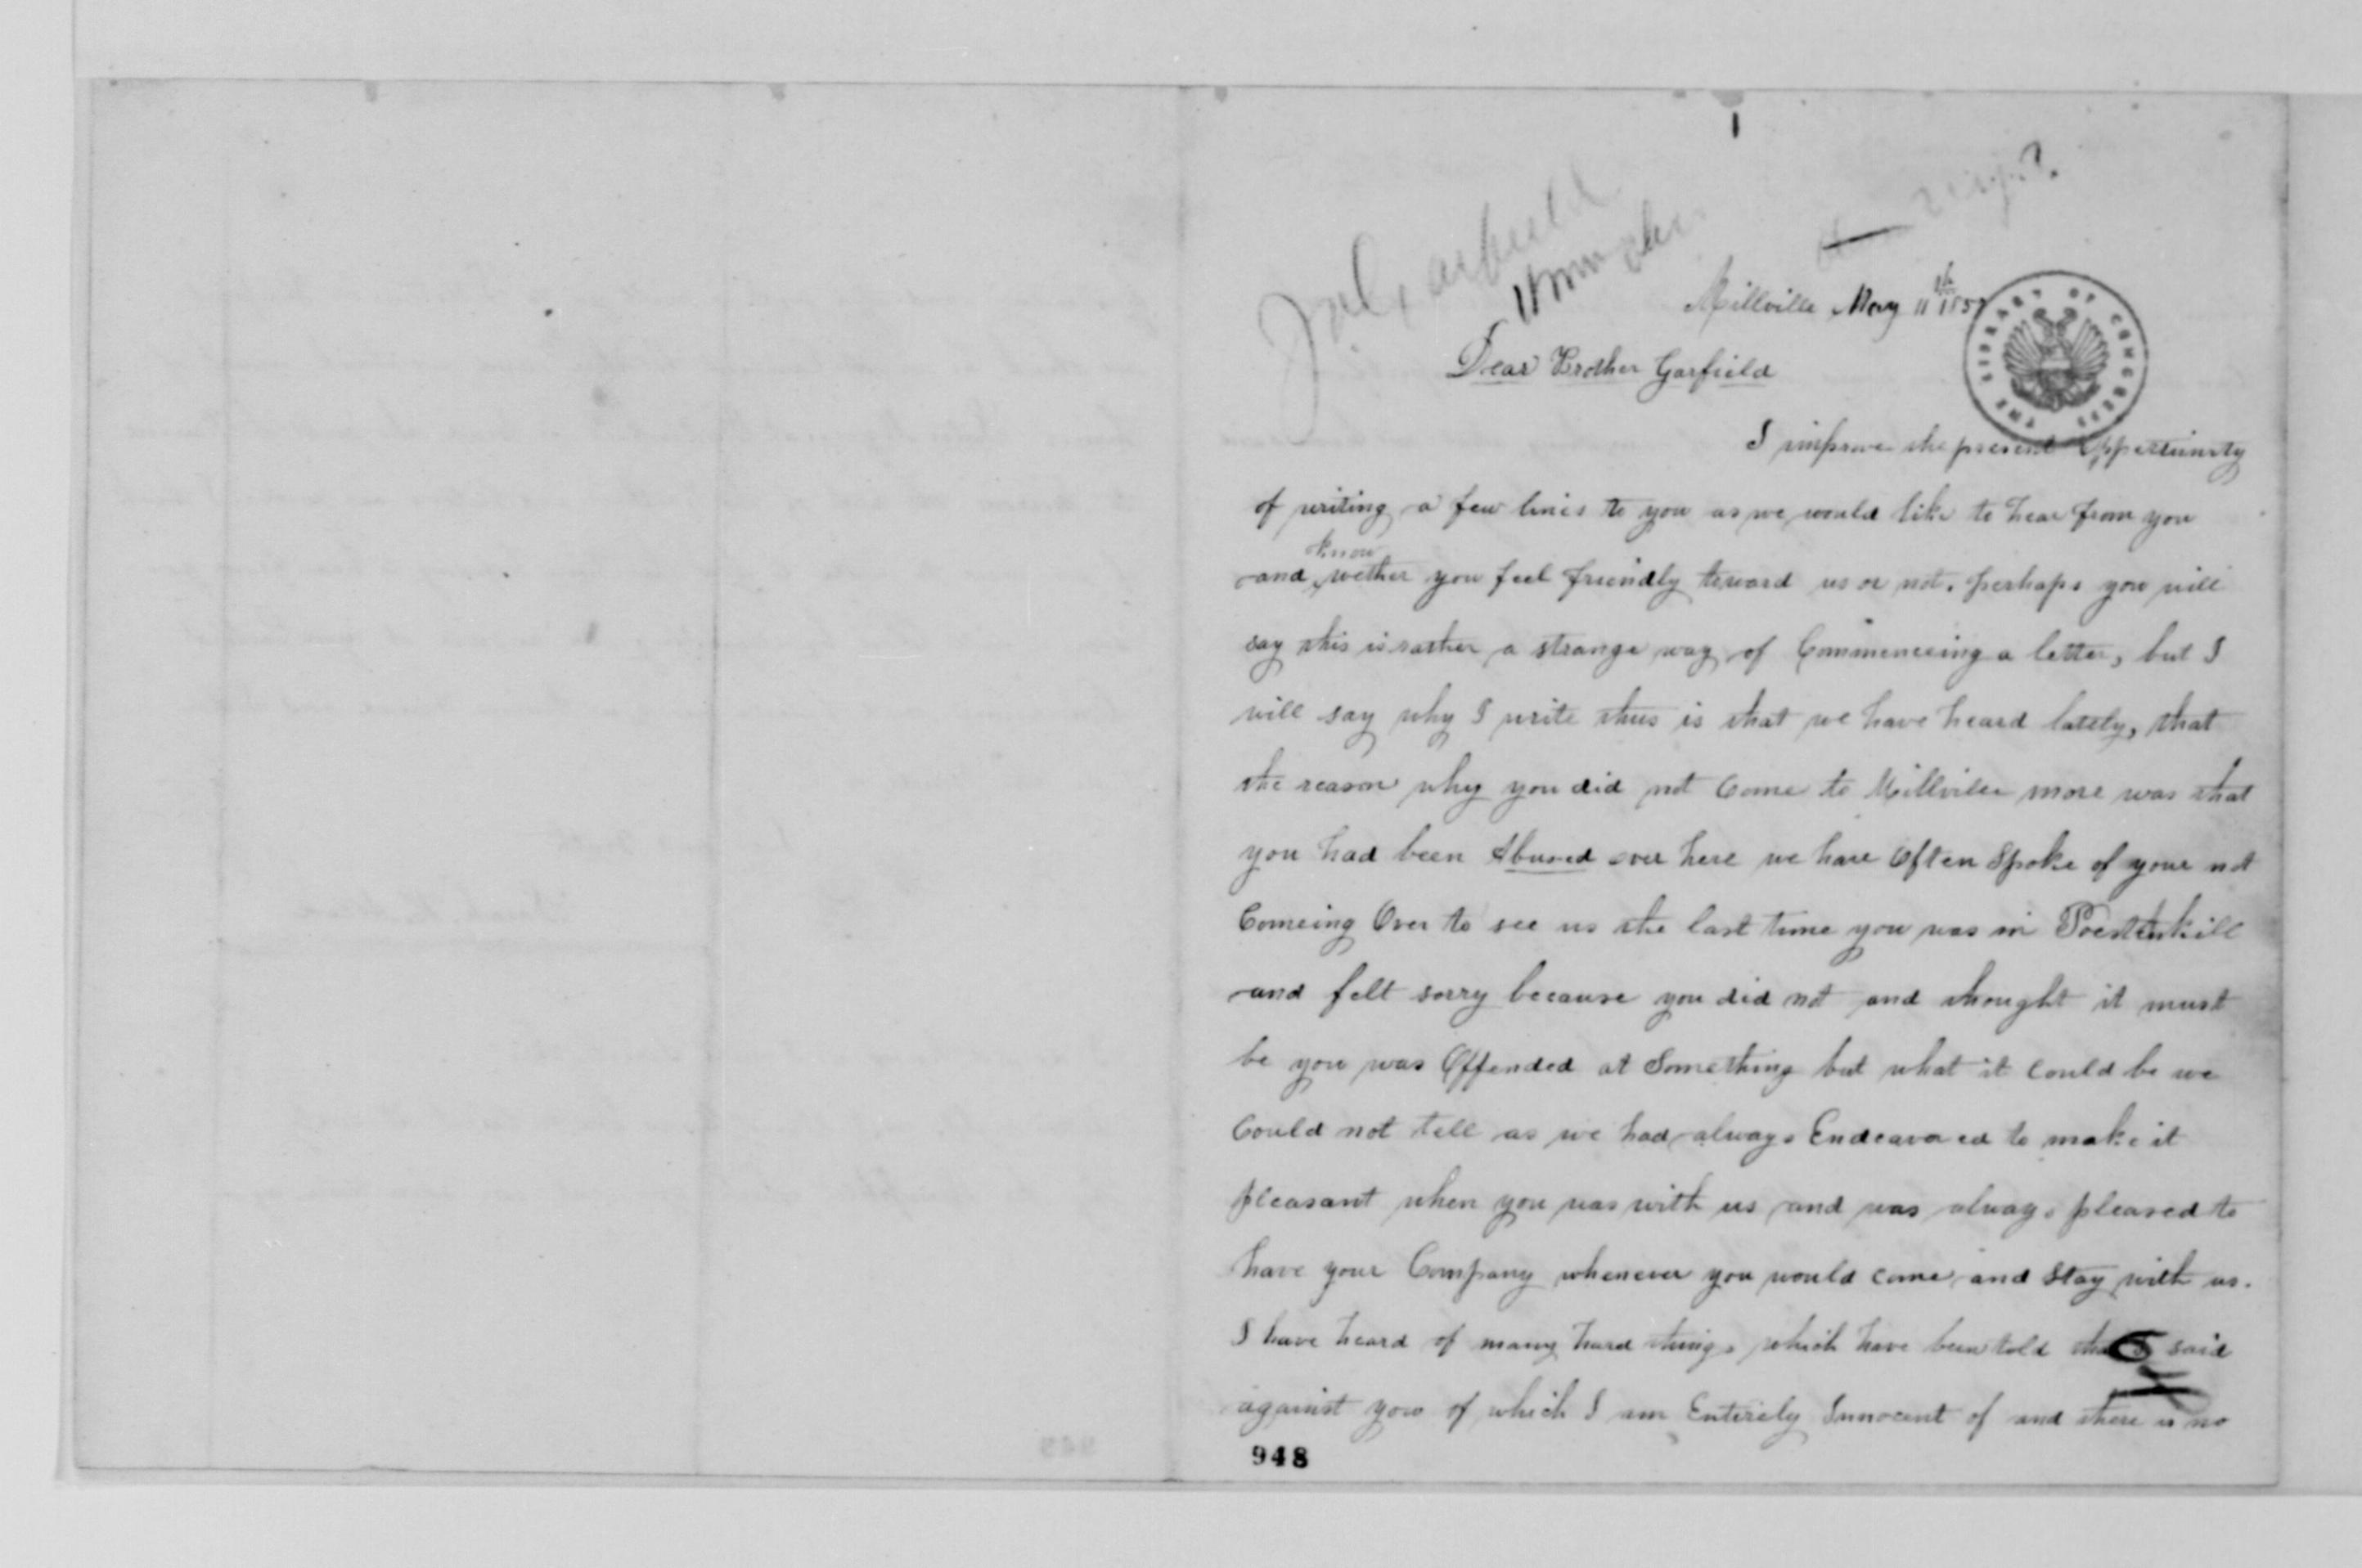 Millville May 11th 185
THE LIBRARY OF CONGRESS
Dear Brother Garfield
I improve the present Oppertunity
of writing a few lines to you as we would like to hear from you
know
and wether you feel friendly toward us or not. perhaps you will
say this is rather a strange way of Commenceing a letter, but I
will say why I write thus is that we have heard lately, that
the reason why you did not Come to Millville more was that
you had been Abused over here we have Often Spoke of your not
Comeing Over to see us the last time you was in Poestenkill
and felt sorry because you did not and thought it must
be you was Offended at Something but what it could be we
Could not tell as we had always Endeavored to make it
pleasant when you was with us and was always pleased to
have your Company whenever you would come and Stay with us.
I have heard of many hard things which have been told that I said
against you of which I am Entirely Innocent of and there is no
948